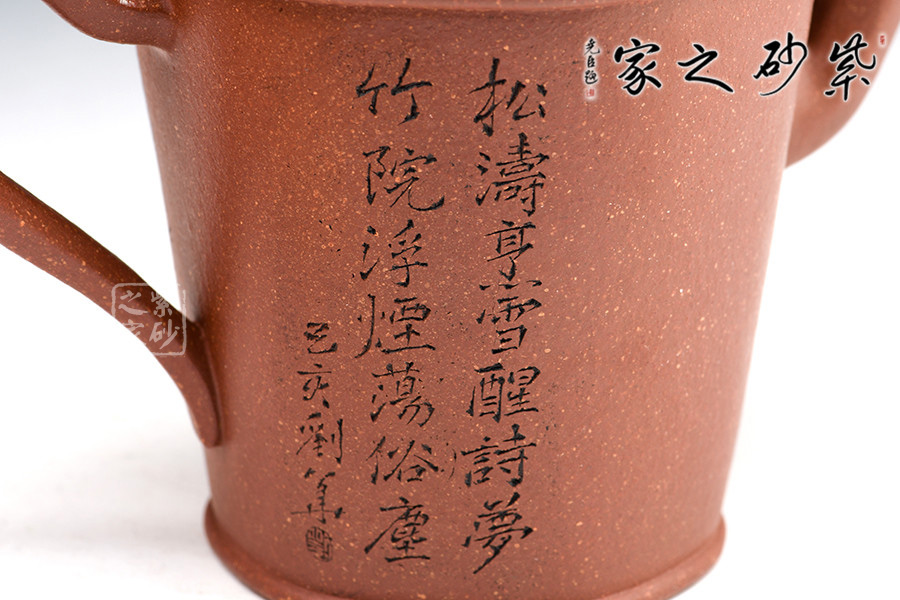 紫砂之家
松濤烹雪醒詩夢
竹院浮煙蕩俗塵
己亥劉
紫砂
之家